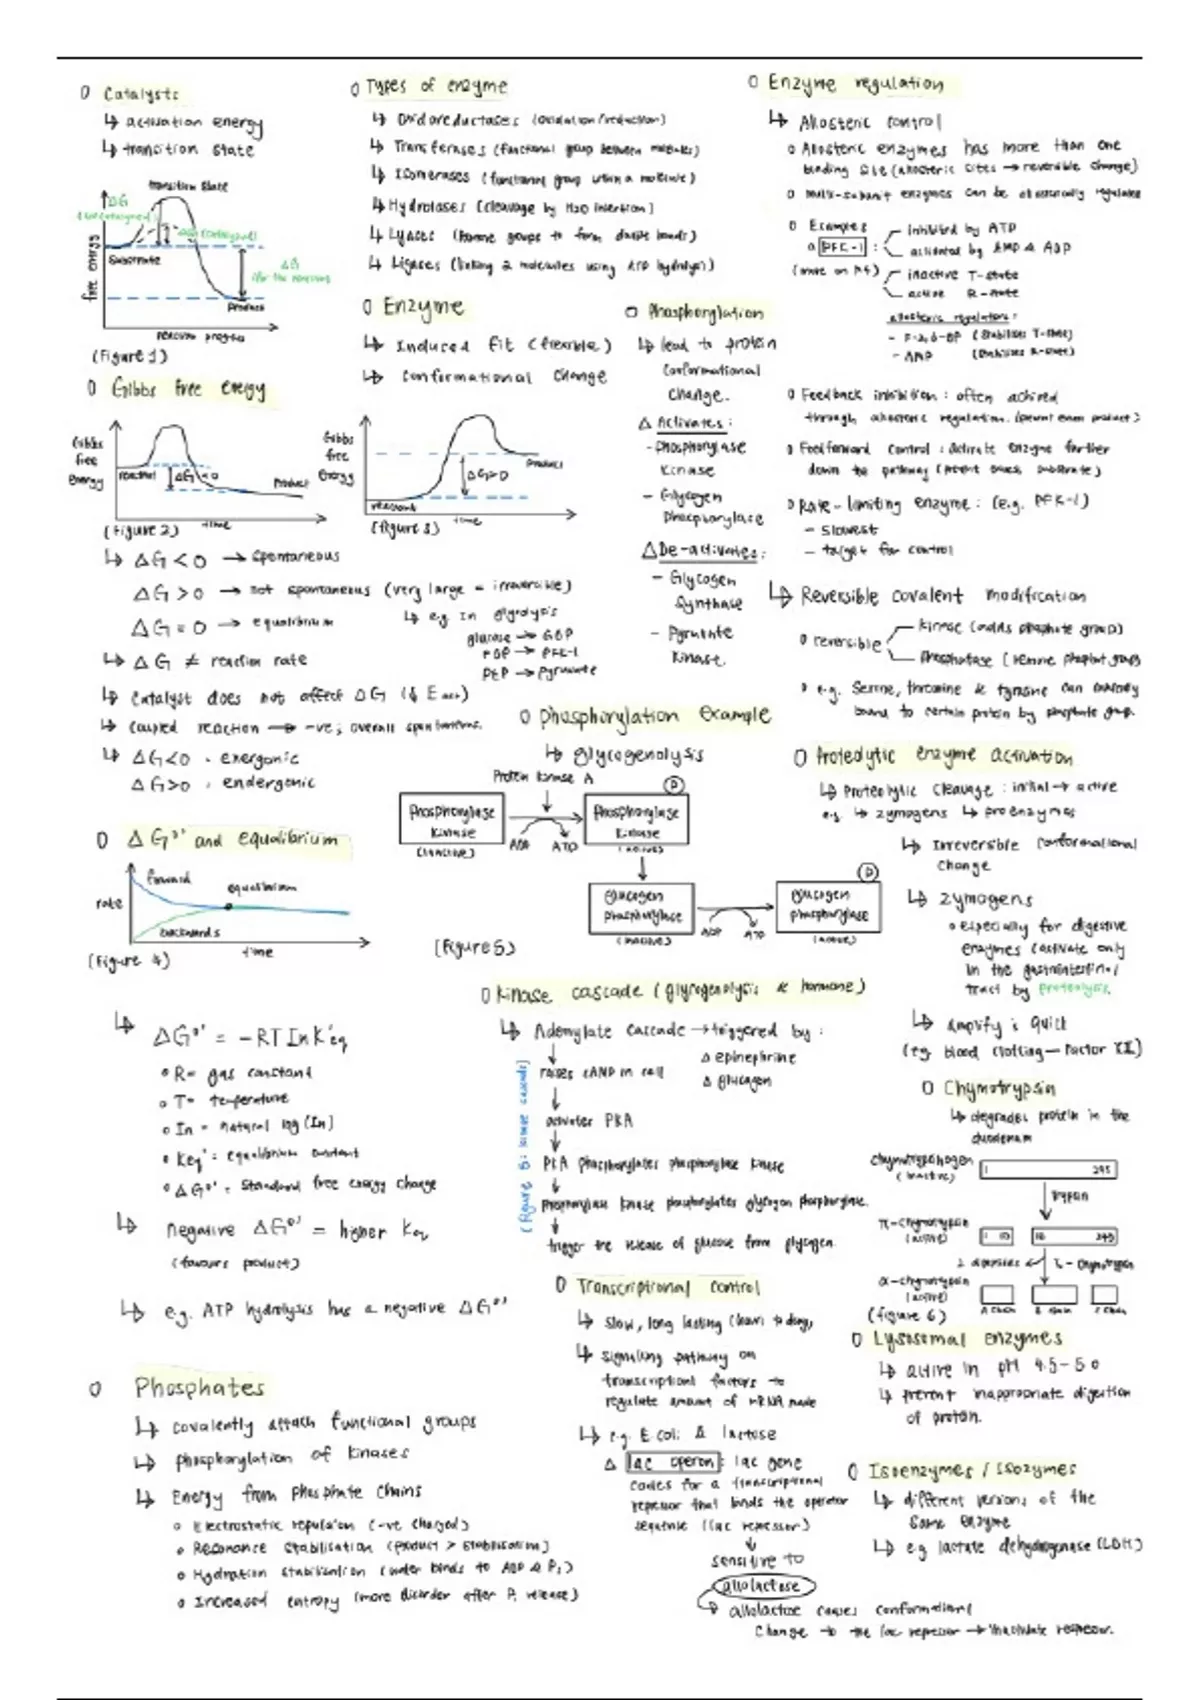 Catalysts
↳ activation energy
↳ transition state
transition state
ΔG
(uncatalysed)
ΔG (catalysed)
free energy
substrate
ΔG
(for the reaction)
product
reaction progress
(Figure 1)
Gibbs free energy
Gibbs free energy
reactant
ΔG<0
product
time
(Figure 2)
Gibbs free energy
product
ΔG>0
reactant
time
(Figure 3)
↳ ΔG<0 → spontaneous
ΔG>0 → not spontaneous (very large = irreversible)
ΔG=0 → equilibrium
↳ e.g. in glycolysis
glucose → G6P
F6P → PFK-1
PEP → pyruvate
↳ ΔG ≠ reaction rate
↳ catalyst does not affect ΔG (↓ E act)
↳ coupled reaction → -ve; overall spontaneous.
↳ ΔG<0 , exergonic
ΔG>0 , endergonic
ΔG°' and equilibrium
rate
forward
equilibrium
backwards
time
(Figure 4)
↳ ΔG°' = -RT In K'eq
R= gas constant
T= temperature
In = natural log (In)
Keq' = equilibrium constant
ΔG°' = standard free energy change
↳ negative ΔG°' = higher Keq
(favours product)
↳ e.g. ATP hydrolysis has a negative ΔG°'
Phosphates
↳ covalently attach functional groups
↳ phosphorylation of kinases
↳ Energy from phosphate chains
Electrostatic repulsion (-ve charged)
Resonance stabilisation (product > stabilisation)
Hydration stabilisation (water binds to ADP & Pi)
Increased entropy (more disorder after Pi release)
Types of enzyme
↳ Oxidoreductases (oxidation/reduction)
↳ Transferases (functional group between molecules)
↳ Isomerases (functional group within a molecule)
↳ Hydrolases (cleavage by H2O insertion)
↳ Lyases (remove groups to form double bonds)
↳ Ligases (linking 2 molecules using ATP hydrolysis)
Enzyme
↳ Induced fit (flexible)
↳ conformational change
Phosphorylation
↳ lead to protein
conformational
change.
Δ Activates:
- phosphorylase
kinase
- Glycogen
phosphorylase
Δ De-activates:
- Glycogen
synthase
- Pyruvate
kinase.
Phosphorylation Example
↳ glycogenolysis
Protein kinase A
Phosphorylase kinase
(inactive)
ADP
ATP
P
Phosphorylase kinase
(active)
glycogen phosphorylase
(inactive)
ADP
ATP
P
glycogen phosphorylase
(active)
(Figure 5)
Kinase cascade (glycogenolysis & hormone)
↳ Adenylate cascade → triggered by:
Δ epinephrine
Δ glucagon
raises cAMP in cell
activates PKA
PKA phosphorylates phosphorylase kinase
phosphorylase kinase phosphorylates glycogen phosphorylase.
trigger the release of glucose from glycogen.
kinase cascade)
Transcriptional control
↳ slow, long lasting (hours to days)
↳ signaling pathway on
transcriptional factors to
regulate amount of mRNA made
↳ e.g. E coli & lactose
Δ lac operon: lac gene
codes for a transcriptional
repressor that binds the operator
sequence (lac repressor)
sensitive to
allolactose
↳ allolactose causes conformational
change to the lac repressor → inactivate repressor.
Enzyme regulation
↳ Allosteric control
Allosteric enzymes has more than one
binding site (allosteric sites → reversible change)
Multi-subunit enzymes can be allosterically regulated
Examples
PFK-1 :
inhibited by ATP
activated by AMP & ADP
inactive T-state
active R-state
allosteric regulators:
(stabilises T-state)
- AMP (stabilises R-state)
Feedback inhibition: often achieved
through allosteric regulation. (prevent excess product)
Feedforward control: activate enzyme further
down the pathway (prevent excess substrate)
Rate-limiting enzyme: (e.g. PFK-1)
- slowest
- target for control
↳ Reversible covalent modification
reversible
kinase (adds phosphate group)
phosphatase (remove phosphate group)
e.g. Serine, threonine & tyrosine can covalently
bound to certain protein by phosphate group.
Proteolytic enzyme activation
↳ Proteolytic cleavage: initial → active
e.g. ↳ zymogens ↳ proenzymes
↳ Irreversible conformational
change
↳ zymogens
especially for digestive
enzymes (activate only
in the gastrointestinal
tract by proteolysis.
↳ amplify & quick
(e.g. blood clotting - factor XII)
Chymotrypsin
↳ degrades protein in the
duodenum
chymotrypsinogen
(inactive)
1 245
trypsin
π-chymotrypsin
(active)
1 15
16 245
2 dipeptides
π-chymotrypsin
α-chymotrypsin
(active)
A chain
B chain
C chain
(figure 6)
Lysosomal enzymes
↳ active in pH 4.5-5.0
↳ prevent inappropriate digestion
of protein.
Isoenzymes / Isozymes
↳ different versions of the
same enzyme
↳ e.g lactate dehydrogenase (LDH)